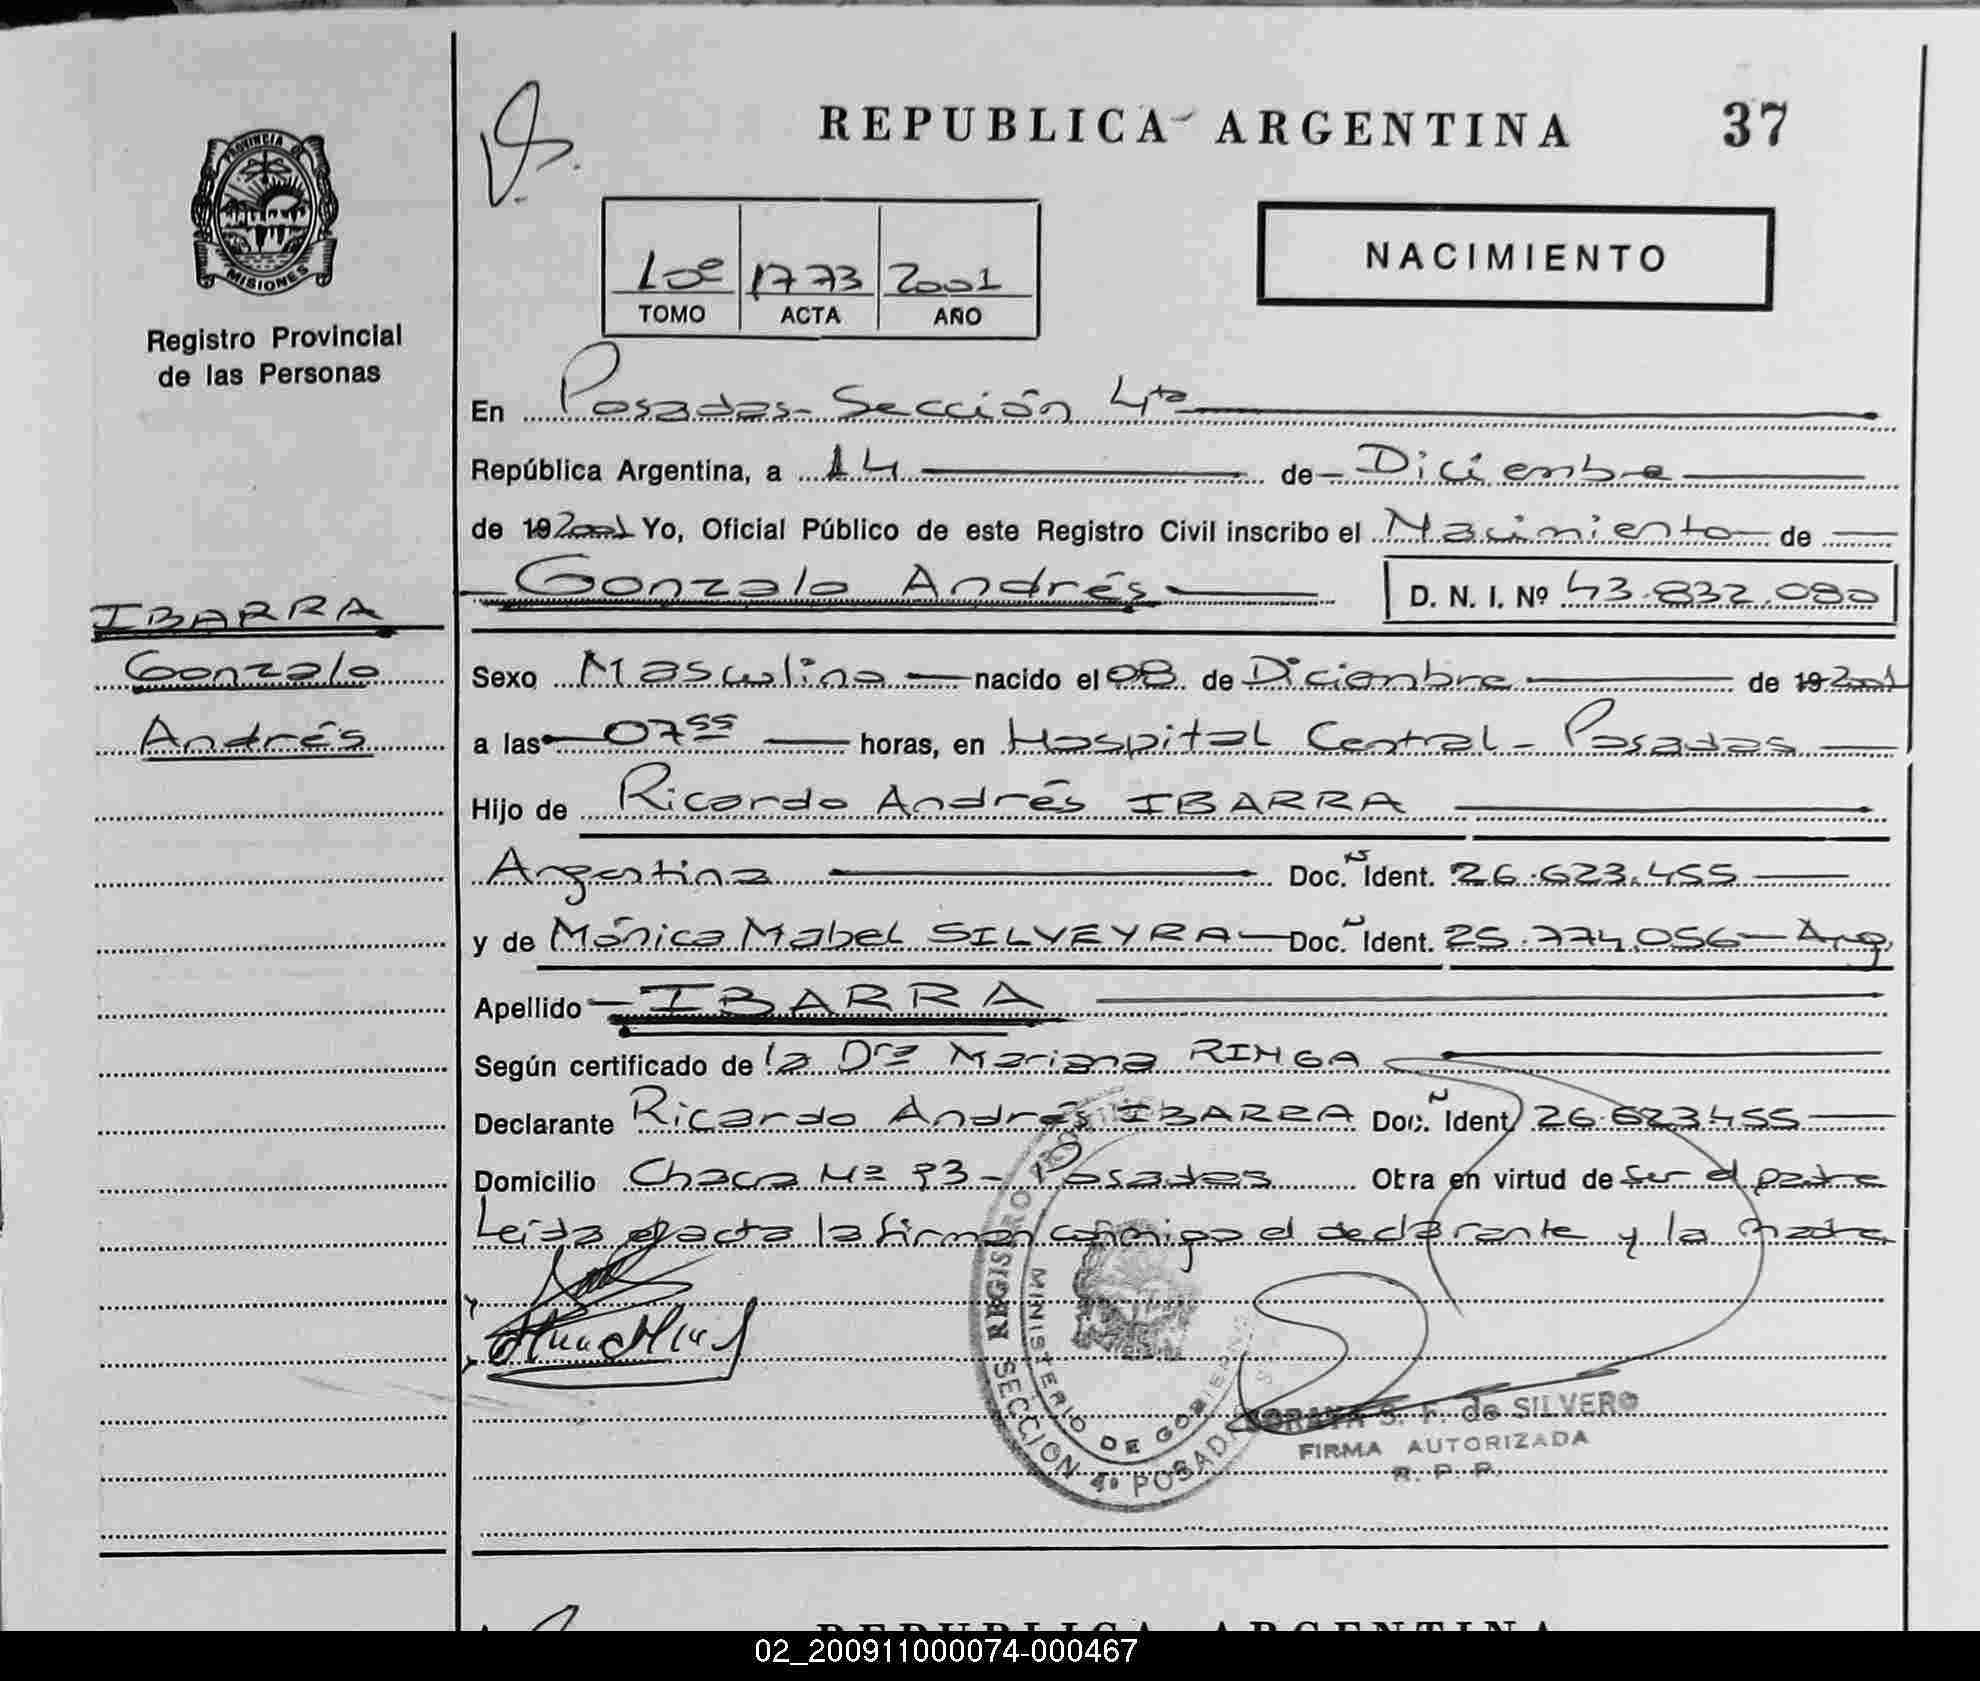 REPUBLICA ARGENTINA 37
PROVINCIA DE
MISIONES
Registro Provincial
de las Personas
10º 1773 2001
TOMO ACTA AÑO
NACIMIENTO
En Posadas - Sección 4ta
República Argentina, a 14 de Diciembre
de 19 2001 Yo, Oficial Público de este Registro Civil inscribo el Nacimiento de
Gonzalo Andrés D. N. I. Nº 43.832.080
IBARRA
Gonzalo
Andrés
Sexo Masculino nacido el 08 de Diciembre de 19 2001
a las 07 55 horas, en Hospital Central - Posadas
Hijo de Ricardo Andrés IBARRA
Argentina Doc. Ident. 26.623.455
y de Mónica Mabel SILVEYRA Doc. Ident. 25.774.056 - Arg.
Apellido IBARRA
Según certificado de la Dra Mariana RINGA
Declarante Ricardo Andrés IBARRA Doc. Ident. 26.623.455
Domicilio Chaca Nº 93 - Posadas Obra en virtud de ser el padre
Leída el acta la firman conmigo el declarante y la madre
REGISTRO
SECCION 4º POSADAS
MINISTERIO DE GOBIERNO
SORAYA S. F. de SILVERO
FIRMA AUTORIZADA
R. P. P.
REPUBLICA ARGENTINA
02_200911000074-000467